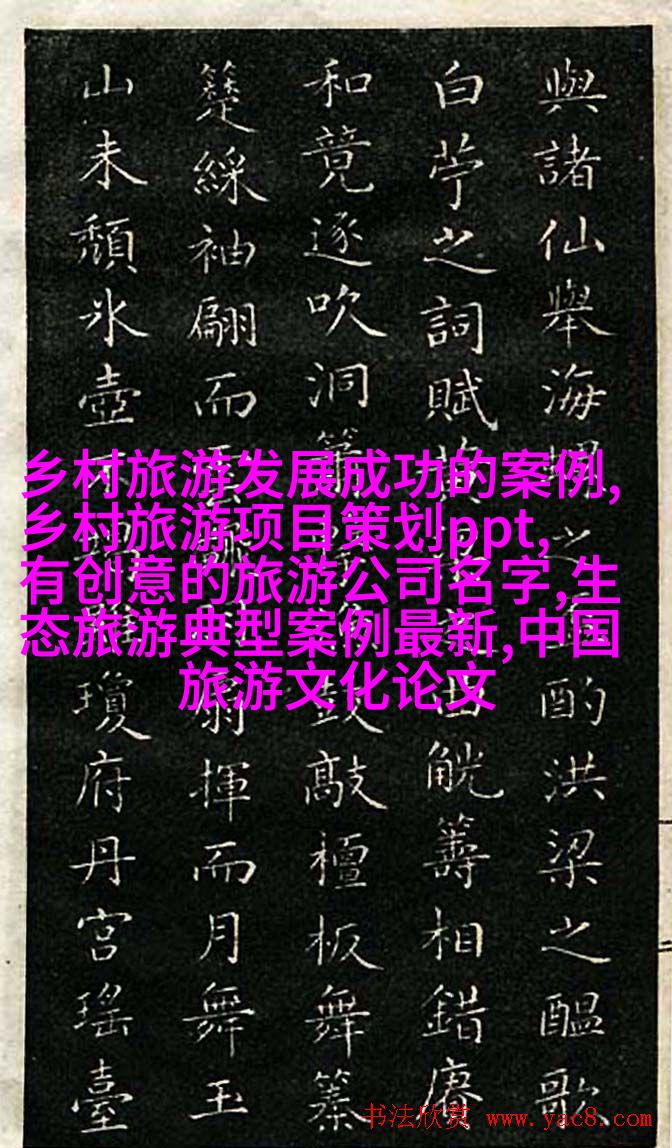 與諸仙舉海之酌洪梁之醞歌
白苧之詞賦觥籌相錯賡
和竟逐吹洞鼓敲檀板舞
綵袖翩而扇揮而月舞玉
山未頹氷壺瓊府丹宮瑤臺
乡村旅游发展成功的案例,
乡村旅游项目策划ppt,
有创意的旅游公司名字,生
态旅游典型案例最新,中国
旅游文化论文
书法欣赏 www.yac8.com